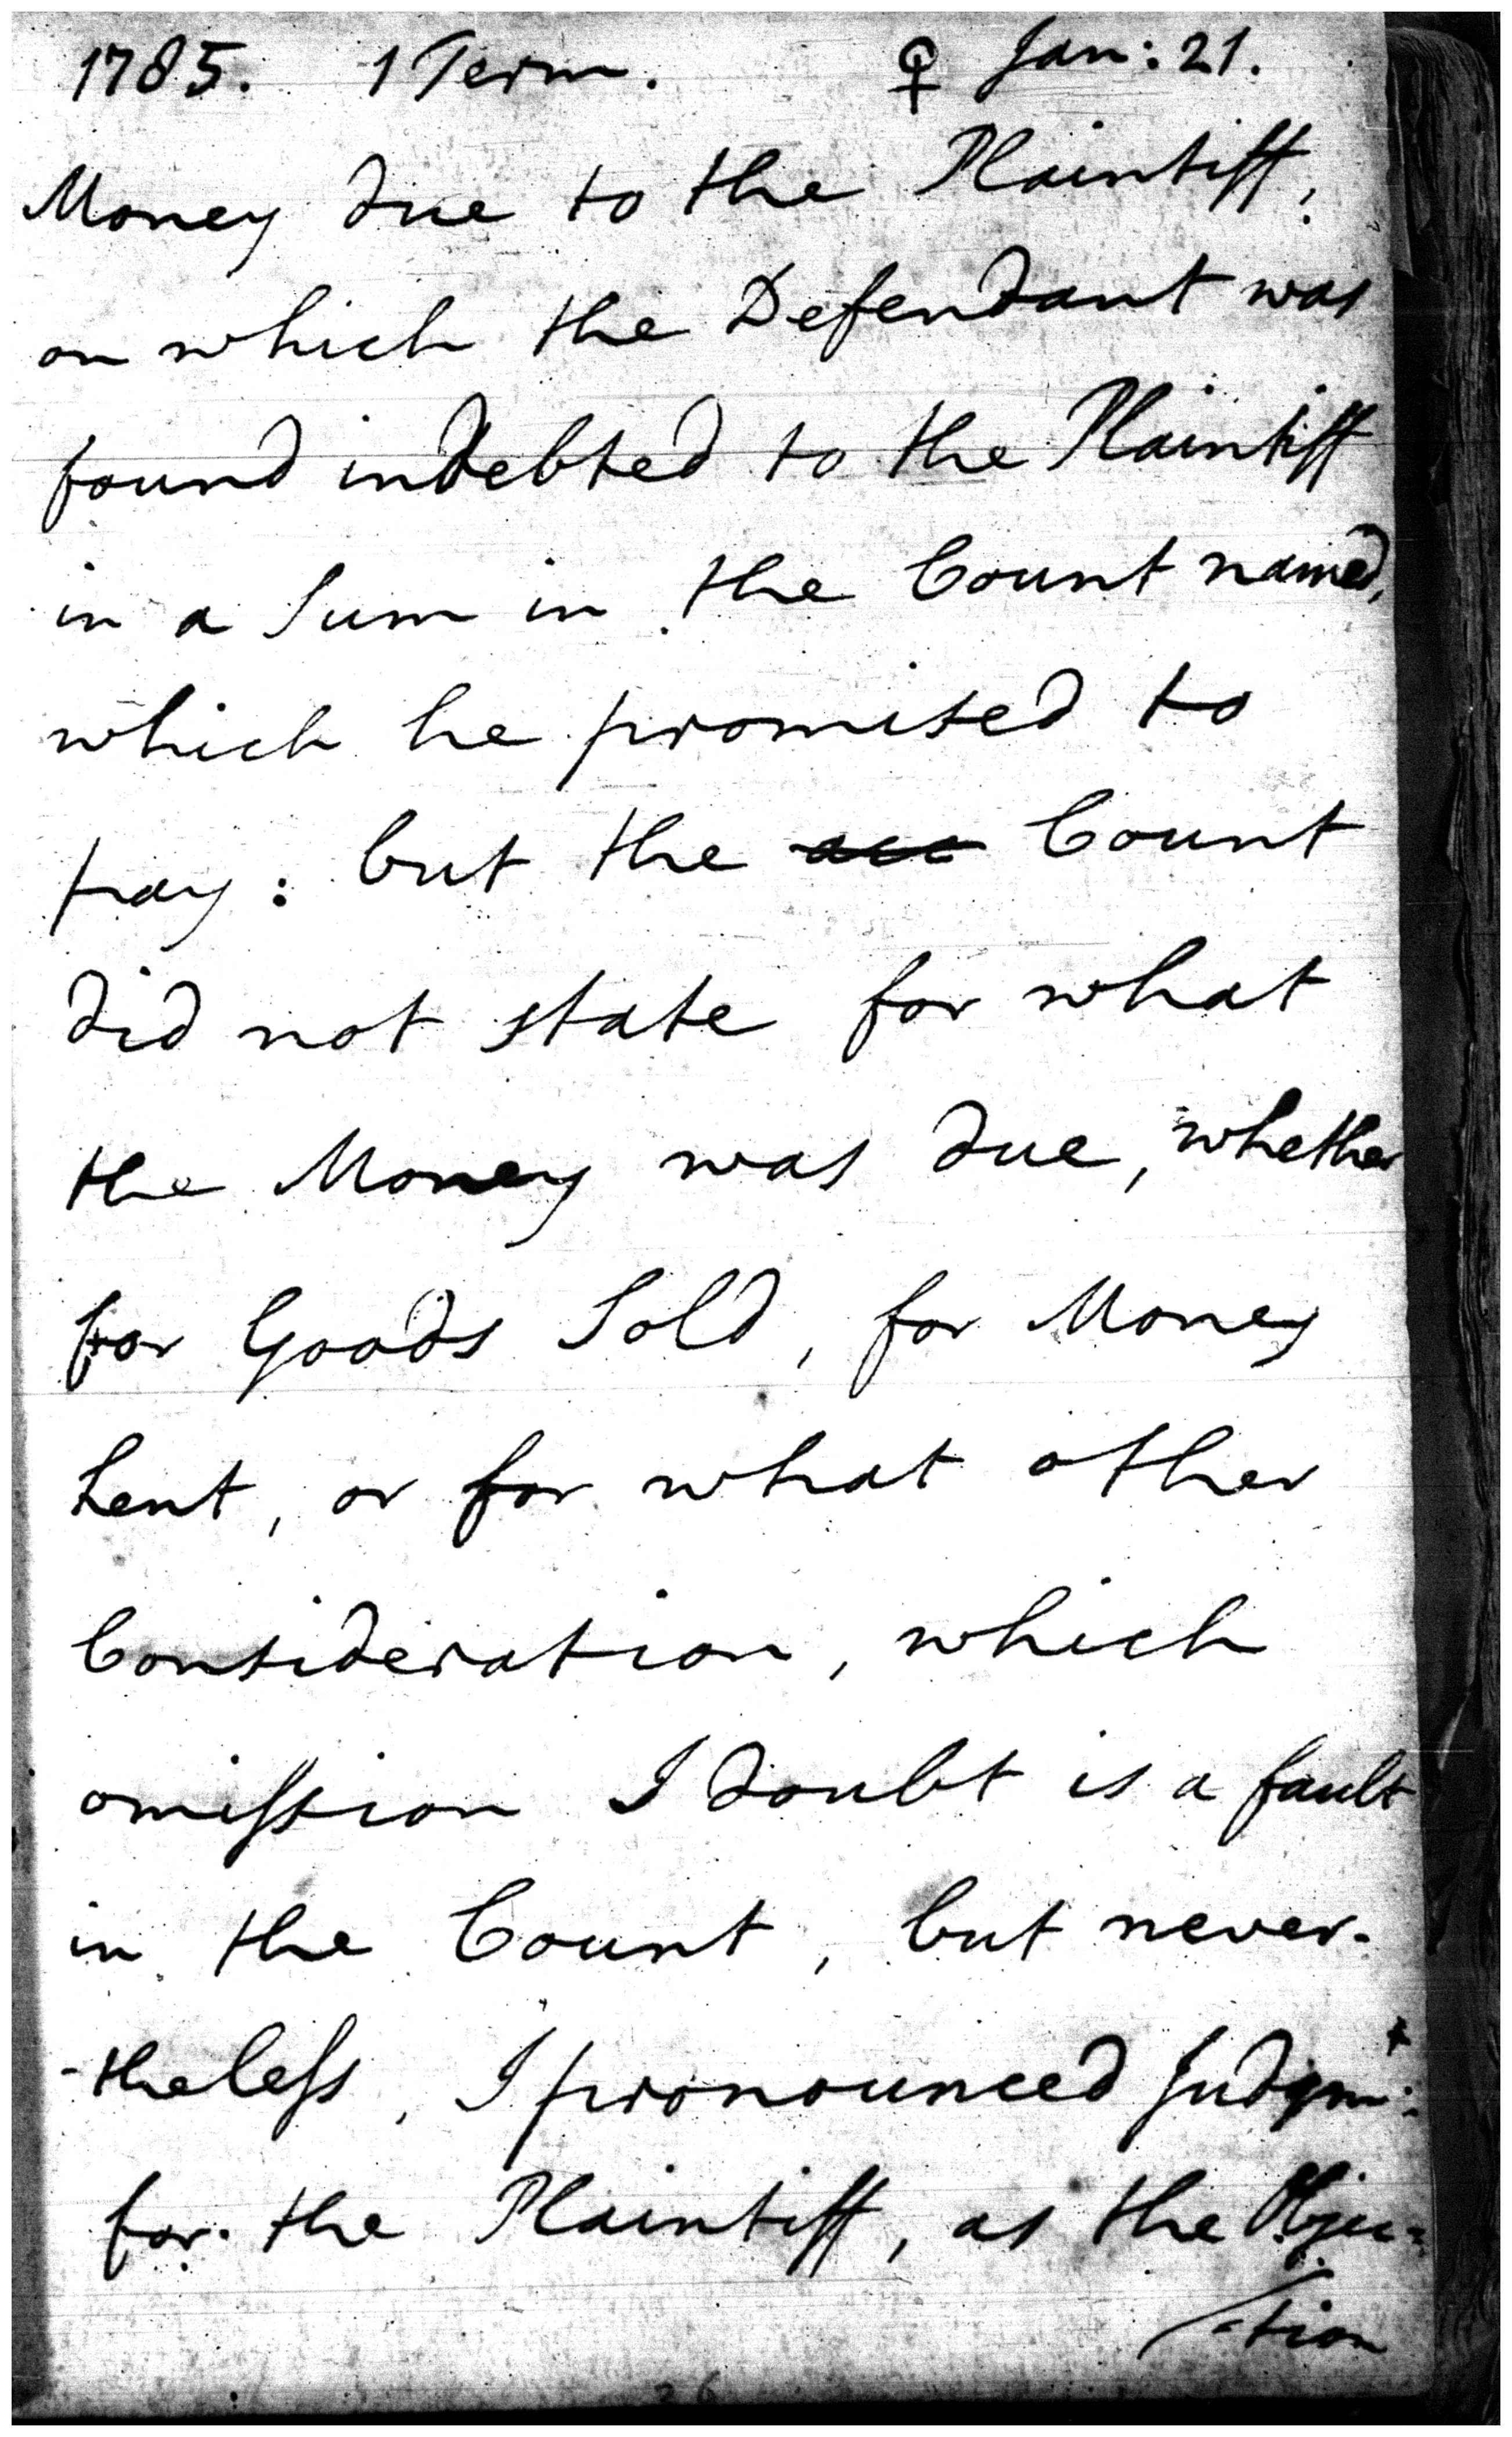 1785. 1 Term. ♀ Jan: 21.
Money due to the Plaintiff;
on which the Defendant was
found indebted to the Plaintiff
in a Sum in the Count named,
which he promised to
pay: but the acc Count
did not state for what
the Money was due, whether
for Goods Sold, for Money
Lent, or for what other
Consideration, which
omission I doubt is a fault
in the Count, but never-
-theless, I pronounced Judgmt:
for the Plaintiff, as the Objec=
-tion